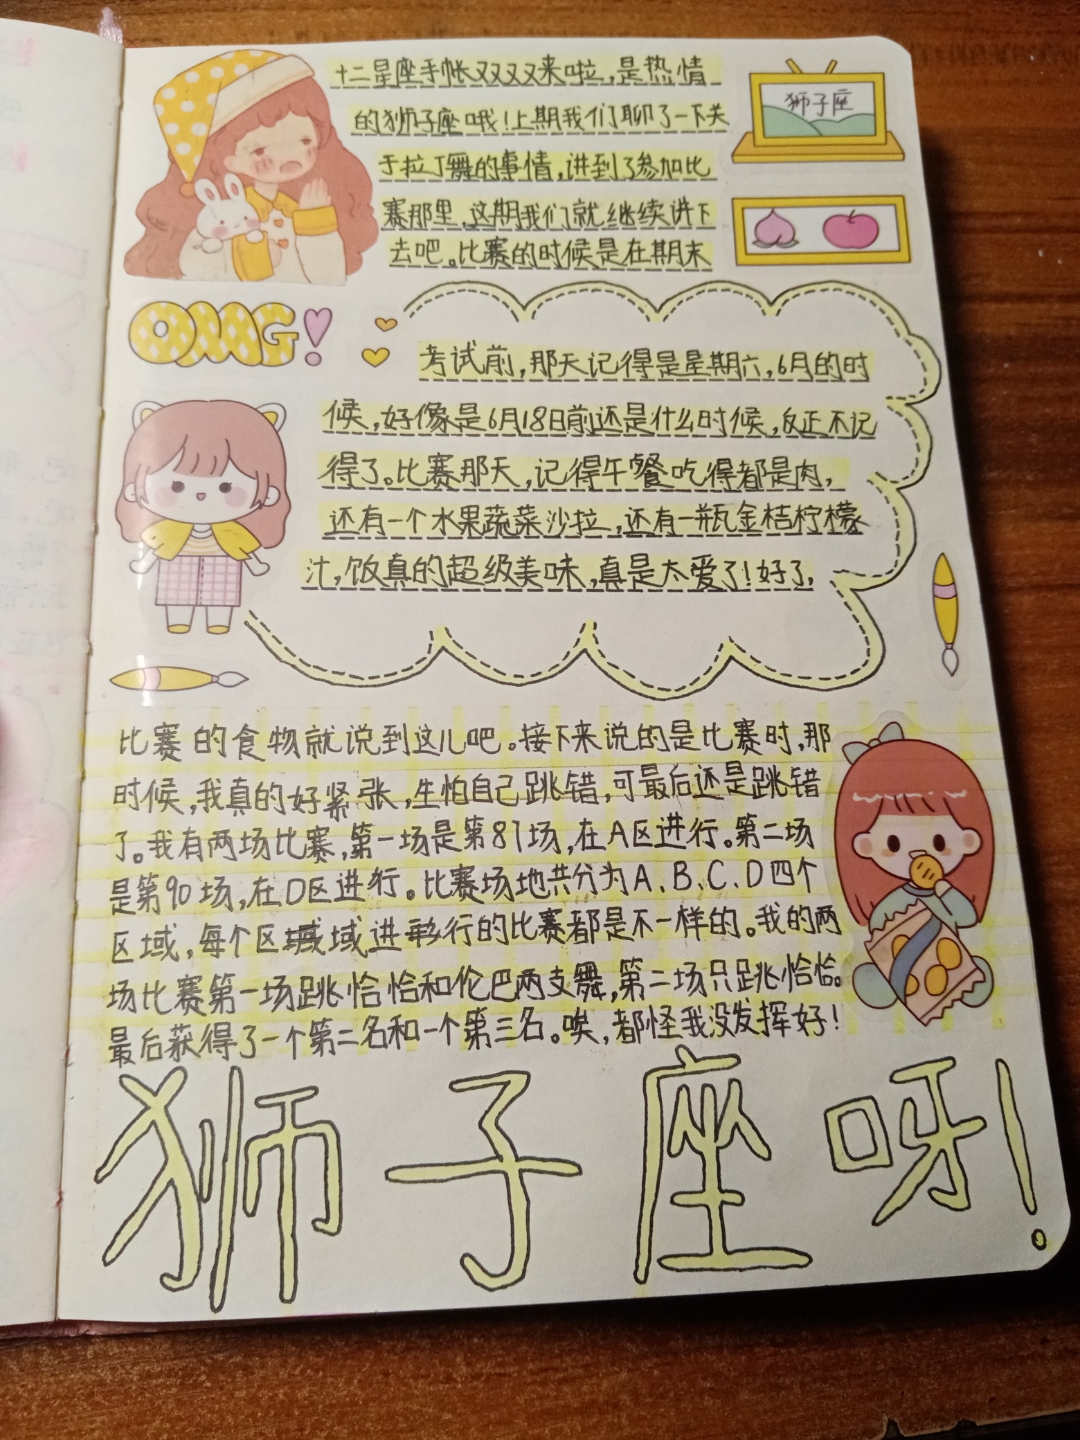 十二星座手帐双双双又来啦,是热情
的狮子座哦!上期我们聊了一下关
于拉丁舞的事情,讲到了参加比
赛那里,这期我们就继续讲下
去吧。比赛的时候是在期末
狮子座
OMG!
考试前,那天记得是星期六,6月的时
候,好像是6月18日前还是什么时候,反正不记
得了。比赛那天,记得午餐吃得都是肉,
还有一个水果蔬菜沙拉,还有一瓶金桔柠檬
汁,饭真的超级美味,真是太爱了!好了,
比赛的食物就说到这儿吧。接下来说的是比赛时,那
时候,我真的好紧张,生怕自己跳错,可最后还是跳错
了。我有两场比赛,第一场是第87场,在A区进行。第二场
是第90场,在D区进行。比赛场地共分为A、B、C、D四个
区域,每个区域进行的比赛都是不一样的。我的两
场比赛第一场跳恰恰和伦巴两支舞,第二场只跳恰恰。
最后获得了一个第二名和一个第三名。唉,都怪我没发挥好!
狮子座呀!